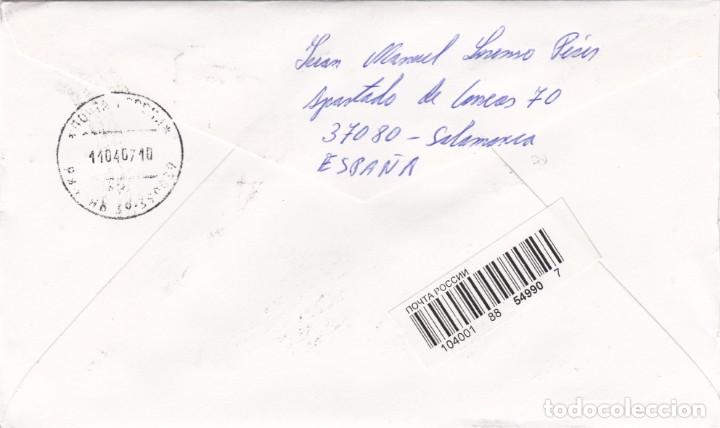 Juan Manuel Lorenzo Pérez
Apartado de Correos 70
37080 - Salamanca
ESPAÑA
11040710
ПОЧТА РОССИИ
104001 88 54990 7
todocoleccion
todocoleccion.net